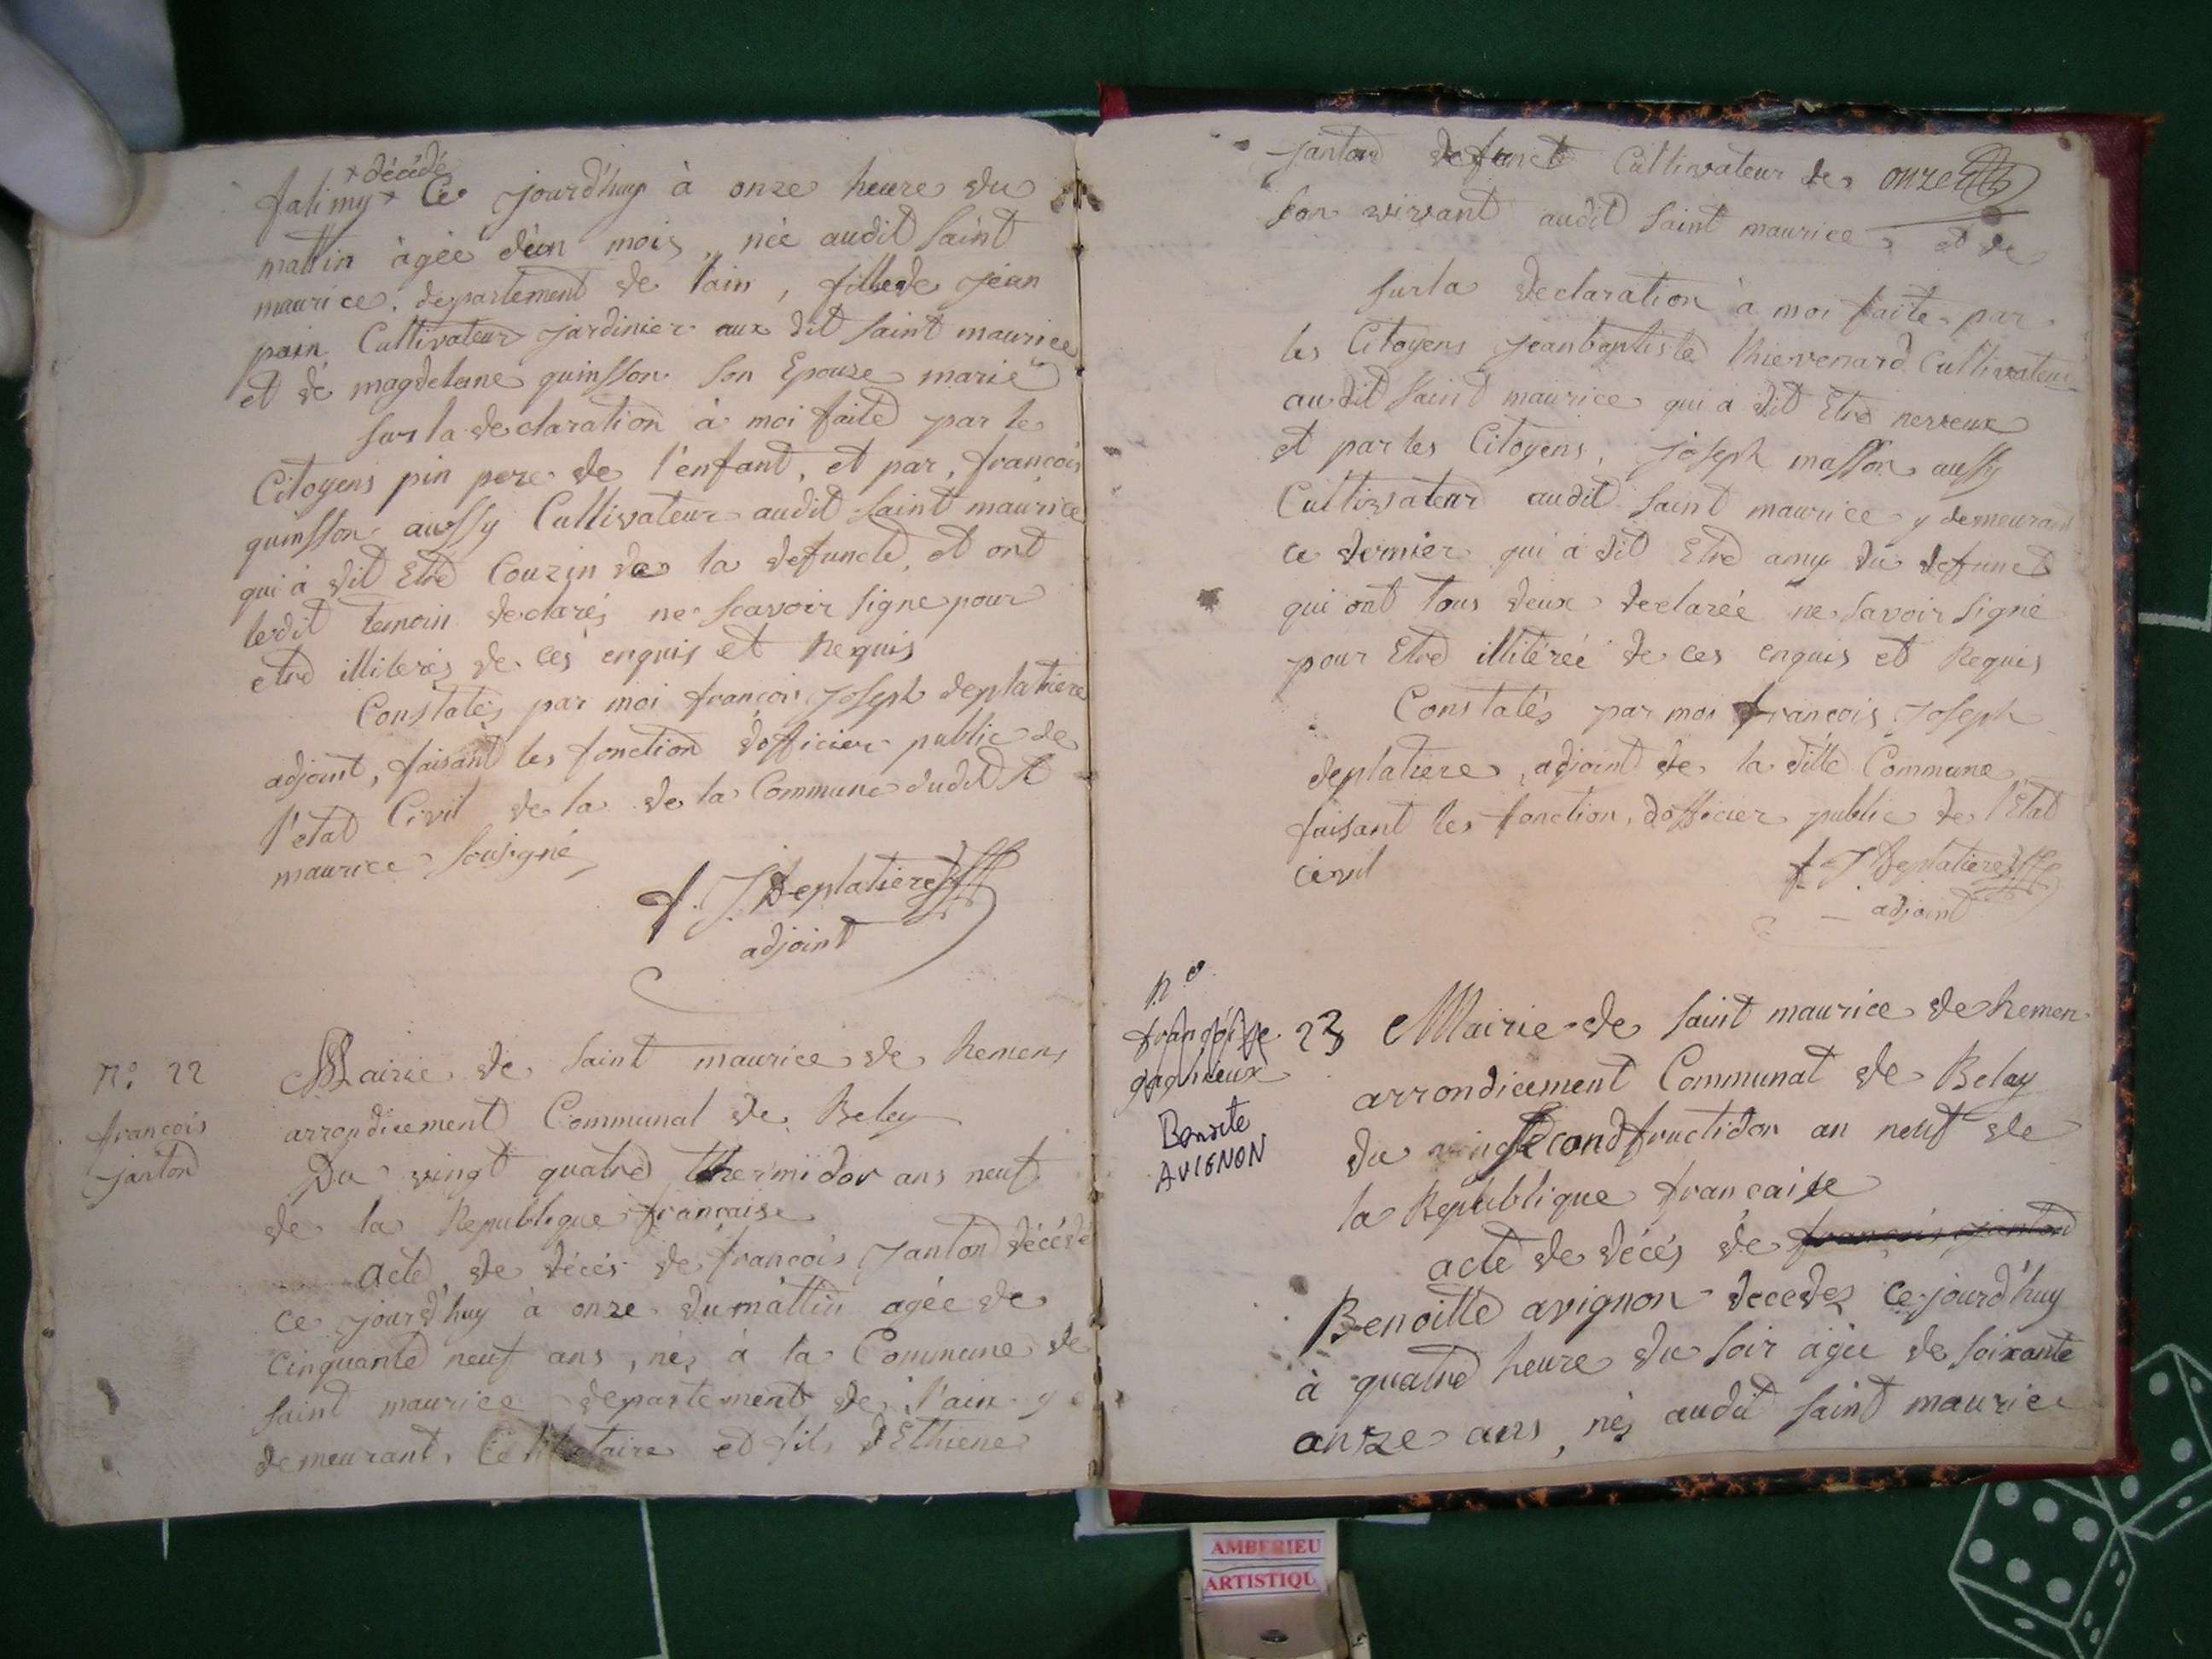 + décédé
+ Ce jourd'huy à onze heure du
mattin àgée d'un mois, née audit Saint
maurice. departement de lain, fille de jean
pain Cultivateur jardinier aux dit Saint maurice
et de magdelene quinsson son Epouze marié
Sur la declaration à moi faite par le
Citoyens pin pere de l'enfant, et par, françois
quinsson aussy Cultivateur audit Saint maurice
qui à dit Etre Couzin de la defuncte, et ont
ledit temoin declarés ne Scavoir Signe pour
etre illiterés de ces enquis et Requis
Constatés par moi françois Joseph deplatiere
adjoint, faisant les fonction d'officier public de
l'etat Civil de la de la Commune dudit St
maurice Sousigné
f. J. Deplatiere
adjoint
N.° 22
françois
janton
Mairie de Saint maurice de Remens
arrondicement Communal de Beley
Du vingt quatre thermidor ans neuf
de la Republique française
Acte de décés de françois Janton décédé
ce jourd'huy à onze du mattin agée de
Cinquante neuf ans, nés à la Commune de
Saint maurice departement de l'ain y
demeurant, Celibetaire et fils d'Ethiene
janton defunct Cultivateur de onze
Son vivant audit Saint maurice, et de
Sur la declaration à moi faite par
les Citoyens jeanbaptiste thievenard Cultivateur
audit Saint maurice qui a dit Etre neveux
et par les Citoyens, joseph masson aussy
Cultivateur audit Saint maurice y demeurant
ce dernier qui à dit Etre amy du defunct
qui ont tous deux declarée ne Savoir Signé
pour Etre illitérée de ces enquis et Requis
Constatés par moi françois Joseph
deplatiere, adjoint de la ditte Commune
faisant les fonction, d'officier public de l'Etat
civil
f J Deplatiere
adjoint
n.°
françoise
gagnieux
Benoite
AVIGNON
23 Mairie de Saint maurice de Remen
arrondicement Communal de Belay
du Second fructidor an neuf de
la Republique française
acte de décés de françois janton
Benoitte avignon decedez ce jourd'huy
à quatre heure du Soir agée de Soixante
onze ans, nés audit Saint maurice
AMBERIEU
ARTISTIQU